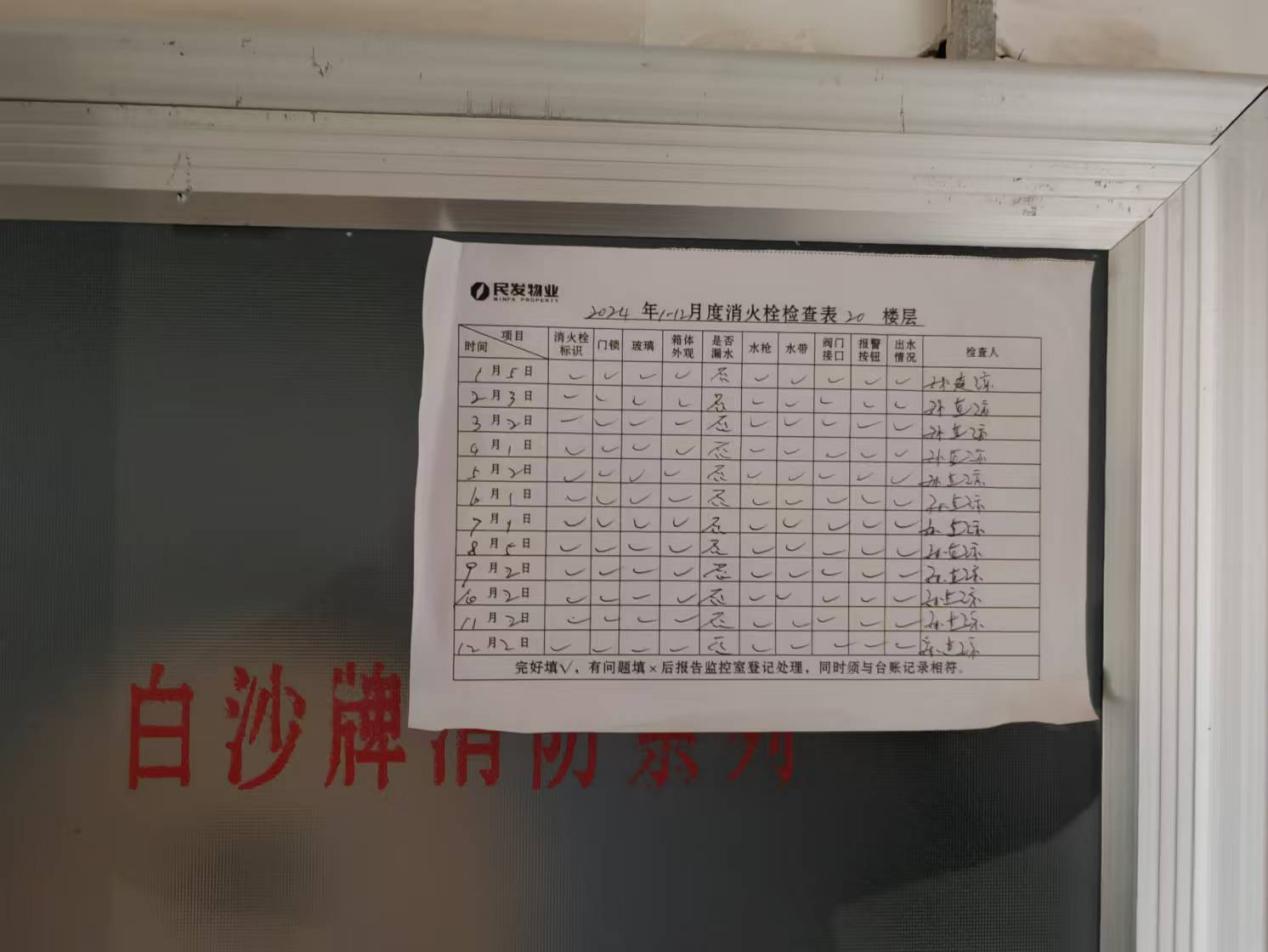 民发物业
MINFA PROPERTY
2024 年1-12月度消火栓检查表 20 楼层
项目 时间 消火栓标识 门锁 玻璃 箱体外观 是否漏水 水枪 水带 阀门接口 报警按钮 出水情况 检查人
1月5日 ✓ ✓ ✓ ✓ 否 ✓ ✓ ✓ ✓ ✓
2月3日 ✓ ✓ ✓ ✓ 否 ✓ ✓ ✓ ✓ ✓
3月2日 ✓ ✓ ✓ ✓ 否 ✓ ✓ ✓ ✓ ✓
4月1日 ✓ ✓ ✓ ✓ 否 ✓ ✓ ✓ ✓ ✓
5月2日 ✓ ✓ ✓ ✓ 否 ✓ ✓ ✓ ✓ ✓
6月1日 ✓ ✓ ✓ ✓ 否 ✓ ✓ ✓ ✓ ✓
7月1日 ✓ ✓ ✓ ✓ 否 ✓ ✓ ✓ ✓ ✓
8月5日 ✓ ✓ ✓ ✓ 否 ✓ ✓ ✓ ✓ ✓
9月2日 ✓ ✓ ✓ ✓ 否 ✓ ✓ ✓ ✓ ✓
10月2日 ✓ ✓ ✓ ✓ 否 ✓ ✓ ✓ ✓ ✓
11月2日 ✓ ✓ ✓ ✓ 否 ✓ ✓ ✓ ✓ ✓
12月2日 ✓ ✓ ✓ ✓ 否 ✓ ✓ ✓ ✓ ✓
完好填√，有问题填×后报告监控室登记处理，同时须与台账记录相符。
白沙牌消防系列